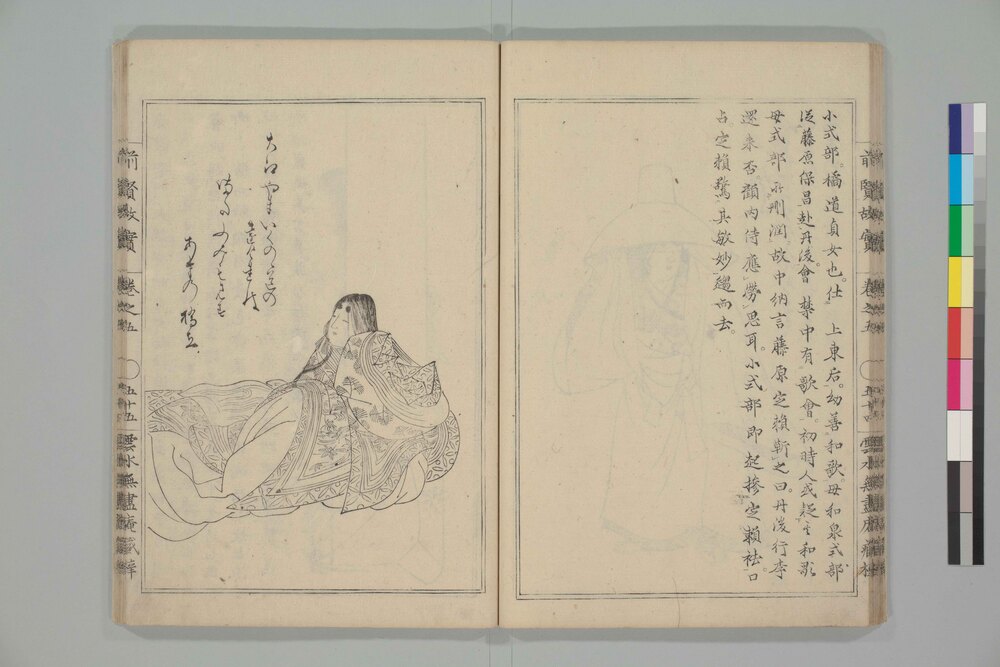 小式部。橘道貞女也。仕　上東后。幼善和歌。母和泉式部
従藤原保昌赴丹後。會　禁中有歌會。初時人或疑其和歌
母式部所刪潤。故中納言藤原定頼靳之曰。丹後行李
還来否。顧内侍應勞思耳。小式部即起摻定頼袪。口
占。定頼驚其敏妙。趨而去。
大江やまいくのゝ道の
遠けれは
まだふみもみす
あまの橋立
前賢故實
巻之五
五十五
雲水無盡庵蔵梓
前賢故實
巻之五
雲水無盡庵蔵梓